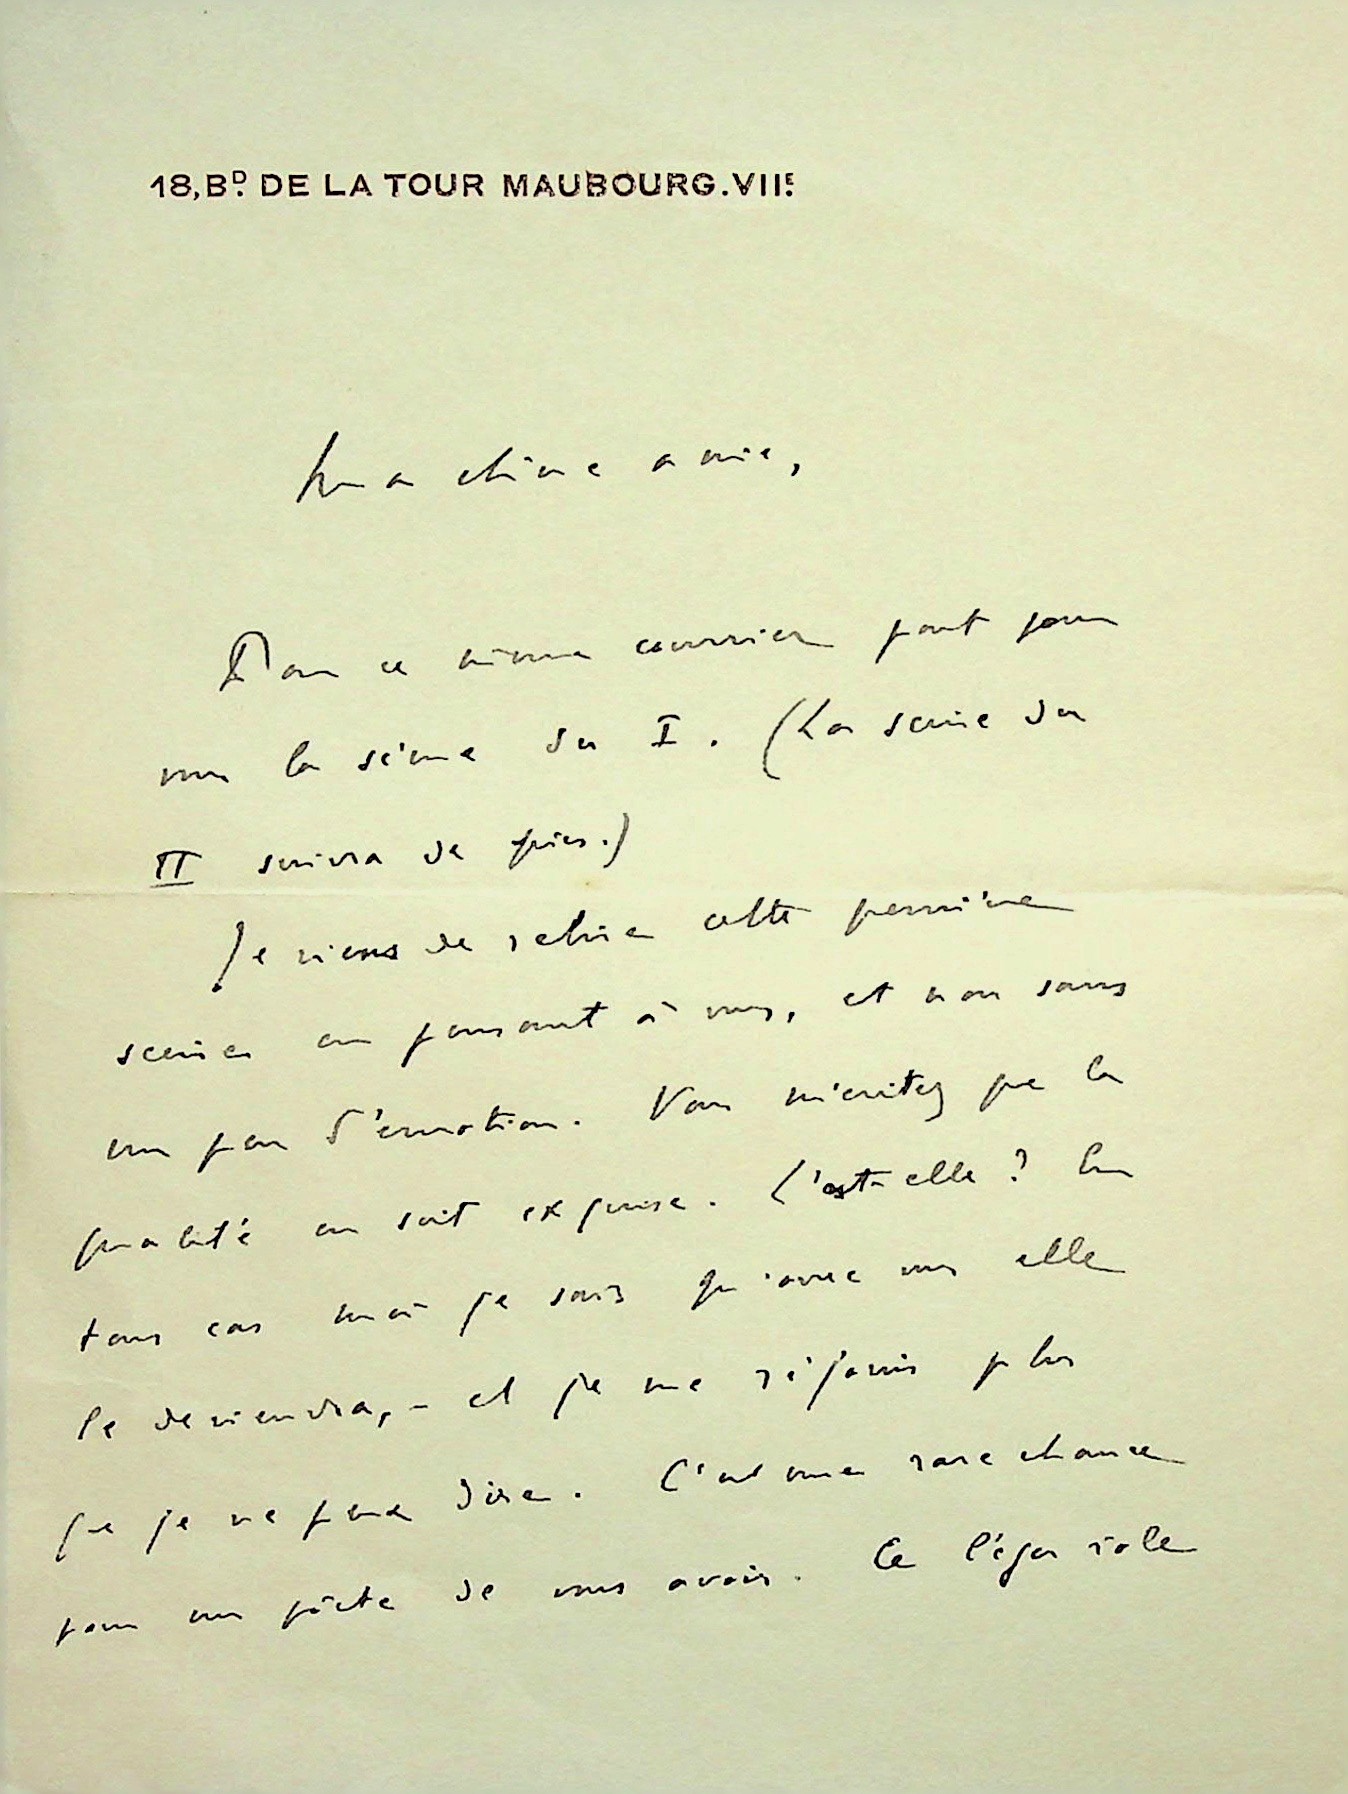 18, BD. DE LA TOUR MAUBOURG. VIIE.
Ma chère amie,
Par ce même courrier part pour
vous la scène du I. (La scène du
II suivra de près.)
Je viens de relire cette première
scène en pensant à vous, et non sans
un peu d'émotion. Vous méritez que la
qualité en soit exquise. L'est-elle ? En
tous cas moi je sais qu'avec vous elle
le deviendra, - et je me réjouis plus
que je ne peux dire. C'est une rare chance
pour un poète de vous avoir. Ce léger rôle